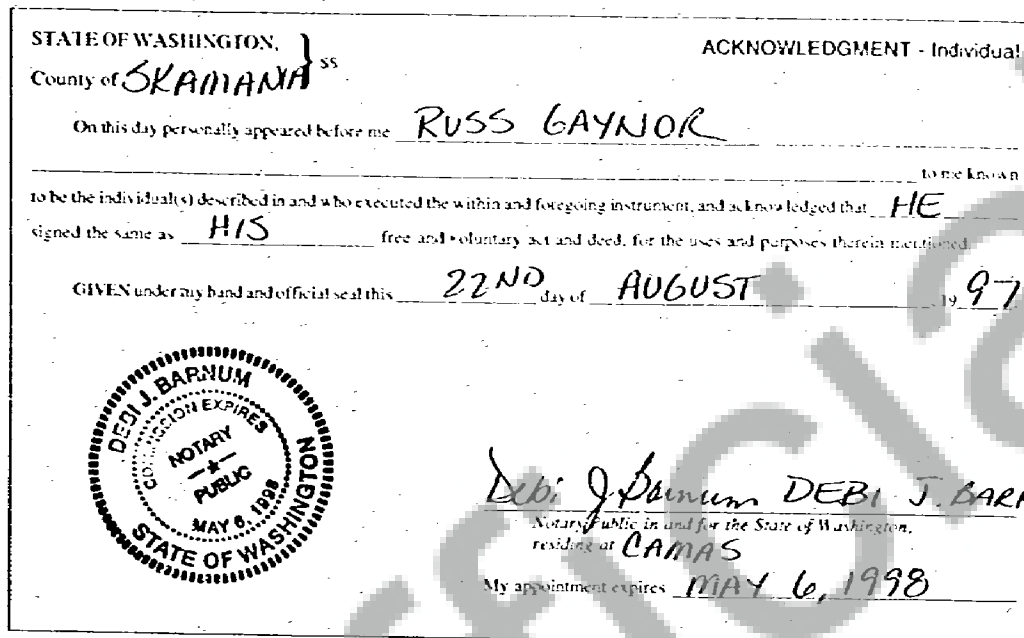 STATE OF WASHINGTON,
County of SKAMANIA } ss
ACKNOWLEDGMENT - Individual
On this day personally appeared before me RUSS GAYNOR
to me known
to be the individual(s) described in and who executed the within and foregoing instrument, and acknowledged that HE
signed the same as HIS free and voluntary act and deed, for the uses and purposes therein mentioned.
GIVEN under my hand and official seal this 22ND day of AUGUST 19 97
DEBI J. BARNUM
COMMISSION EXPIRES
NOTARY
PUBLIC
MAY 6, 1998
STATE OF WASHINGTON
Debi J Barnum DEBI J. BAR
Notary Public in and for the State of Washington,
residing at CAMAS
My appointment expires MAY 6, 1998